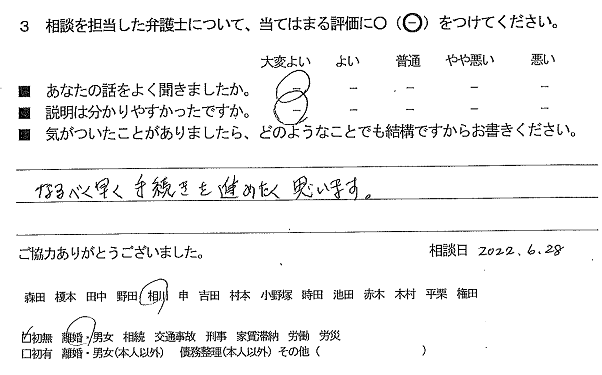 3 相談を担当した弁護士について、当てはまる評価に○（⊖）をつけてください。
大変よい よい 普通 やや悪い 悪い
■ あなたの話をよく聞きましたか。 － － － － －
■ 説明は分かりやすかったですか。 － － － － －
■ 気がついたことがありましたら、どのようなことでも結構ですからお書きください。
なるべく早く手続きを進めたく思います。
ご協力ありがとうございました。 相談日 2022.6.28
森田 榎本 田中 野田 相川 申 吉田 村本 小野塚 時田 池田 赤木 木村 平栗 権田
☑初無 離婚・男女 相続 交通事故 刑事 家賃滞納 労働 労災
□初有 離婚・男女(本人以外) 債務整理(本人以外) その他 ( )